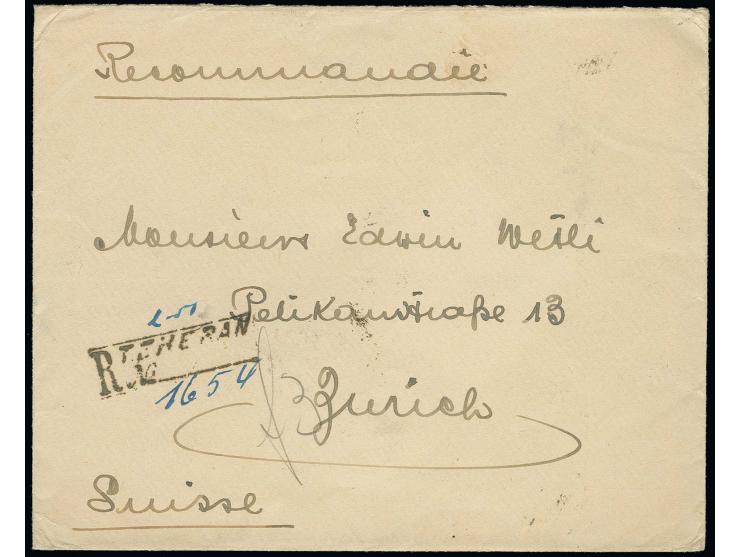 Recommandée
Monsieur Edwin Wetli
Pelikanstraße 13
TEHERAN
R No
1654
Zurich
Suisse